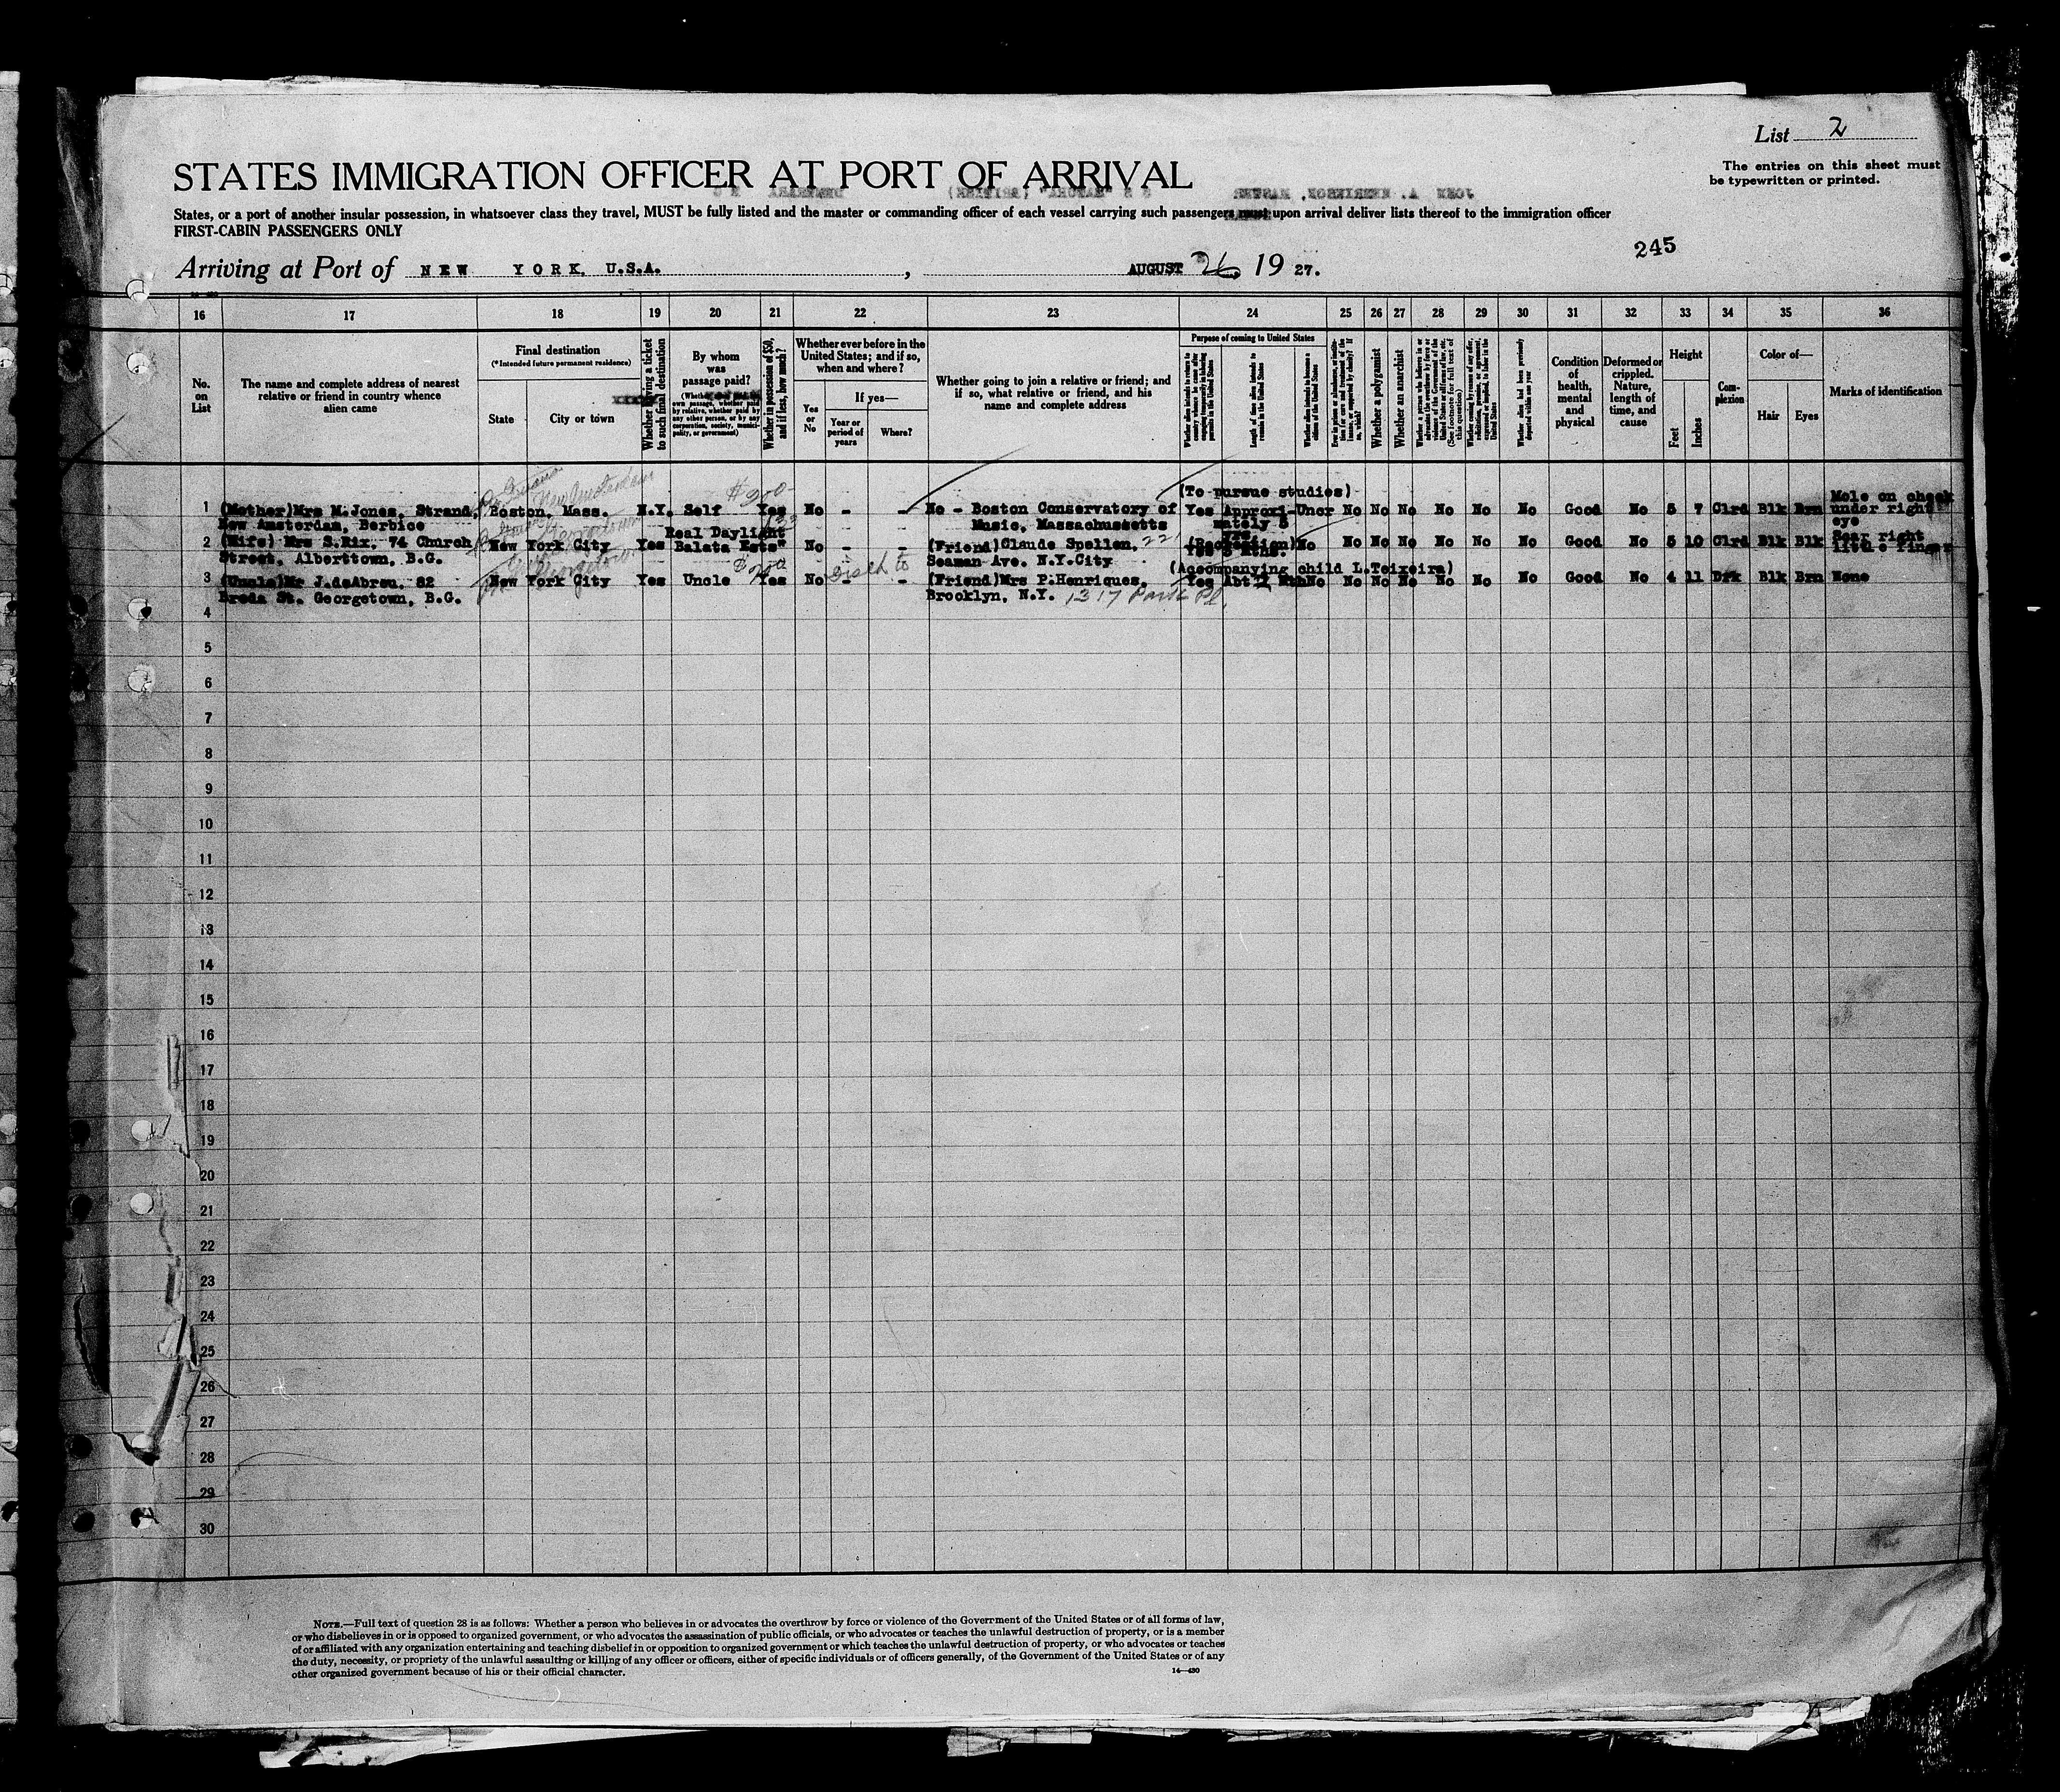 List 2
The entries on this sheet must
be typewritten or printed.
STATES IMMIGRATION OFFICER AT PORT OF ARRIVAL
States, or a port of another insular possession, in whatsoever class they travel, MUST be fully listed and the master or commanding officer of each vessel carrying such passengers must upon arrival deliver lists thereof to the immigration officer
FIRST-CABIN PASSENGERS ONLY
245
Arriving at Port of NEW YORK, U.S.A. , AUGUST 26, 19 27.
16 17 18 19 20 21 22 23 24 25 26 27 28 29 30 31 32 33 34 35 36
No. on List
The name and complete address of nearest relative or friend in country whence alien came
Final destination
(*Intended future permanent residence)
State
City or town
Whether having a ticket to such final destination
By whom was passage paid?
(Whether alien paid own passage, whether paid by relative, whether paid by any other person, or by any corporation, society, municipality, or government)
Whether in possession of $50, and if less, how much?
Whether ever before in the United States; and if so, when and where?
Yes or No
If yes—
Year or period of years
Where?
Whether going to join a relative or friend; and if so, what relative or friend, and his name and complete address
Purpose of coming to United States
Length of time alien intends to remain in the United States
Whether alien intends to become a citizen of the United States
Whether a polygamist
Whether an anarchist
Condition of health, mental and physical
Deformed or crippled. Nature, length of time, and cause
Height
Feet
Inches
Complexion
Color of—
Hair
Eyes
Marks of identification
$200
(To pursue studies)
1 (Mother)Mrs M.Jones, Strand, Boston, Mass. N.Y. Self Yes No - - No - Boston Conservatory of Yes Approxi- Uncr No No No No No No Good No 5 7 Clrd Blk Brn Mole on cheek under right eye
New Amsterdam, Berbice Music, Massachusetts mately 3 yrs
2 (Wife) Mrs S.Rix, 74 Church New York City Yes Real Daylight Balata Ests" No - - (Friend)Claude Spellen, 221 (Recreation) No No No No No No No Good No 5 10 Clrd Blk Blk Scar right little finger
Street, Alberttown, B.G. Seaman Ave. N.Y.City Yes 3 mths.
$200
(Accompanying child L.Teixeira)
3 (Uncle)Mr J.deAbreu, 82 New York City Yes Uncle Yes No - - (Friend)Mrs P.Henriques, Yes Abt No No No No No No No Good No 4 11 Drk Blk Brn None
Breda St. Georgetown, B.G. Brooklyn, N.Y. 1317 Park Pl.
4
5
6
7
8
9
10
11
12
13
14
15
16
17
18
19
20
21
22
23
24
25
26
27
28
29
30
NOTE.—Full text of question 28 is as follows: Whether a person who believes in or advocates the overthrow by force or violence of the Government of the United States or of all forms of law,
or who disbelieves in or is opposed to organized government, or who advocates the assassination of public officials, or who advocates or teaches the unlawful destruction of property, or is a member
of or affiliated with any organization entertaining and teaching disbelief in or opposition to organized government or which teaches the unlawful destruction of property, or who advocates or teaches
the duty, necessity, or propriety of the unlawful assaulting or killing of any officer or officers, either of specific individuals or of officers generally, of the Government of the United States or of any
other organized government because of his or their official character.
14—430